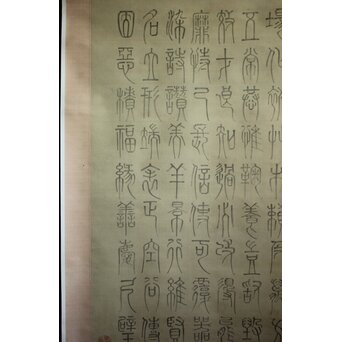 場化被草木賴及萬方
五常恭惟鞠養豈敢毀
效才良知過必改得能
靡恃己長信使可覆器
染詩讚羔羊景行維賢
名立形端表正空谷傳
因惡積福緣善慶尺璧